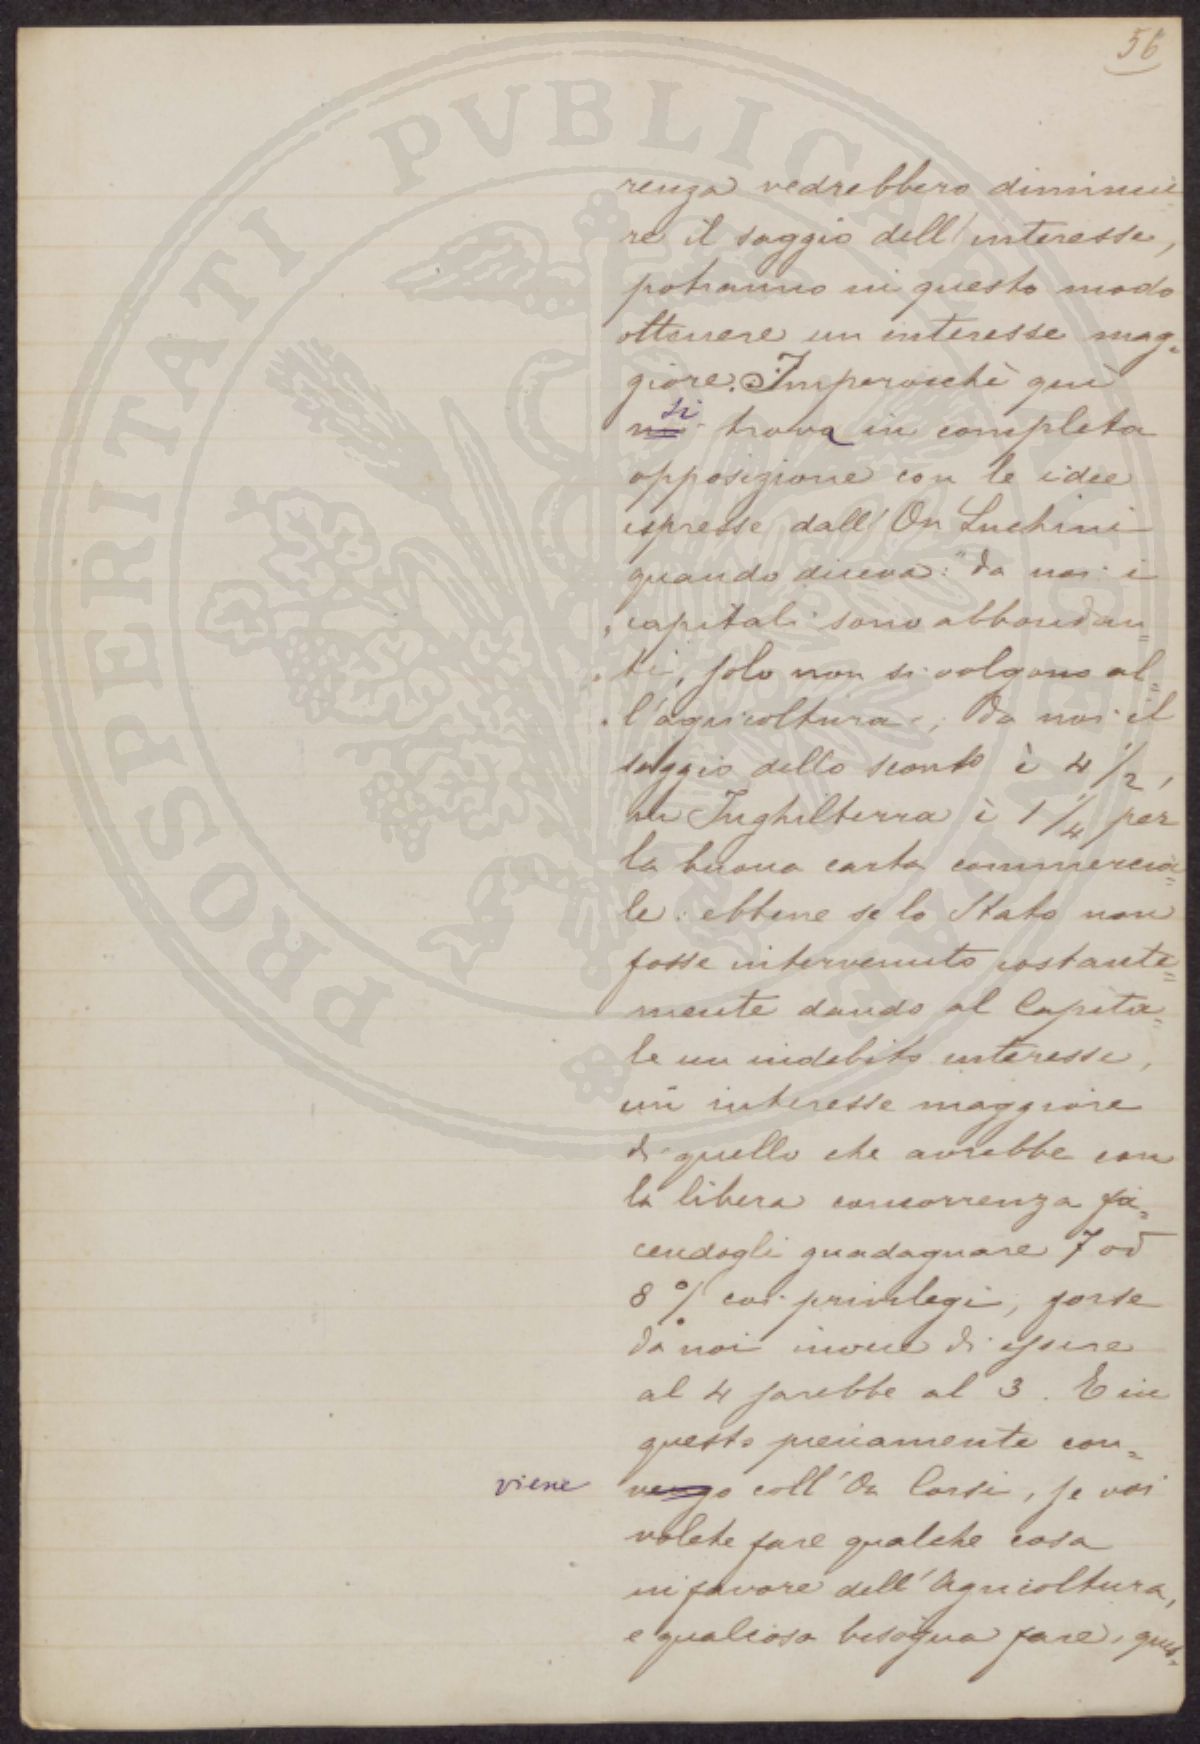 56
renza vedrebbero diminui=
re il saggio dell'interesse,
potranno in questo modo
ottenere un interesse mag=
giore. Imperocchè quì
mi si trova in completa
opposizione con le idee
espresse dall'On Luchini
quando diceva: "da noi i
"capitali sono abbondan=
"ti, solo non si volgono al=
"l'agricoltura"; da noi il
saggio dello sconto è 4 1/2,
in Inghilterra è 1 1/4 per
la buona carta commercia=
le: ebbene se lo Stato non
fosse intervenuto costante=
mente dando al Capita=
le un indebito interesse,
un interesse maggiore
di quello che avrebbe con
la libera concorrenza fa=
cendogli guadagnare 7 od
8 % coi privilegi, forse
da noi invece di essere
al 4 sarebbe al 3. E in
questo pienamente con=
viene vengo coll'On Corsi, se voi
volete fare qualche cosa
in favore dell'Agricoltura,
e qualcosa bisogna fare, ques=
PROSPERITATI PVBLICAE AVGENDAE